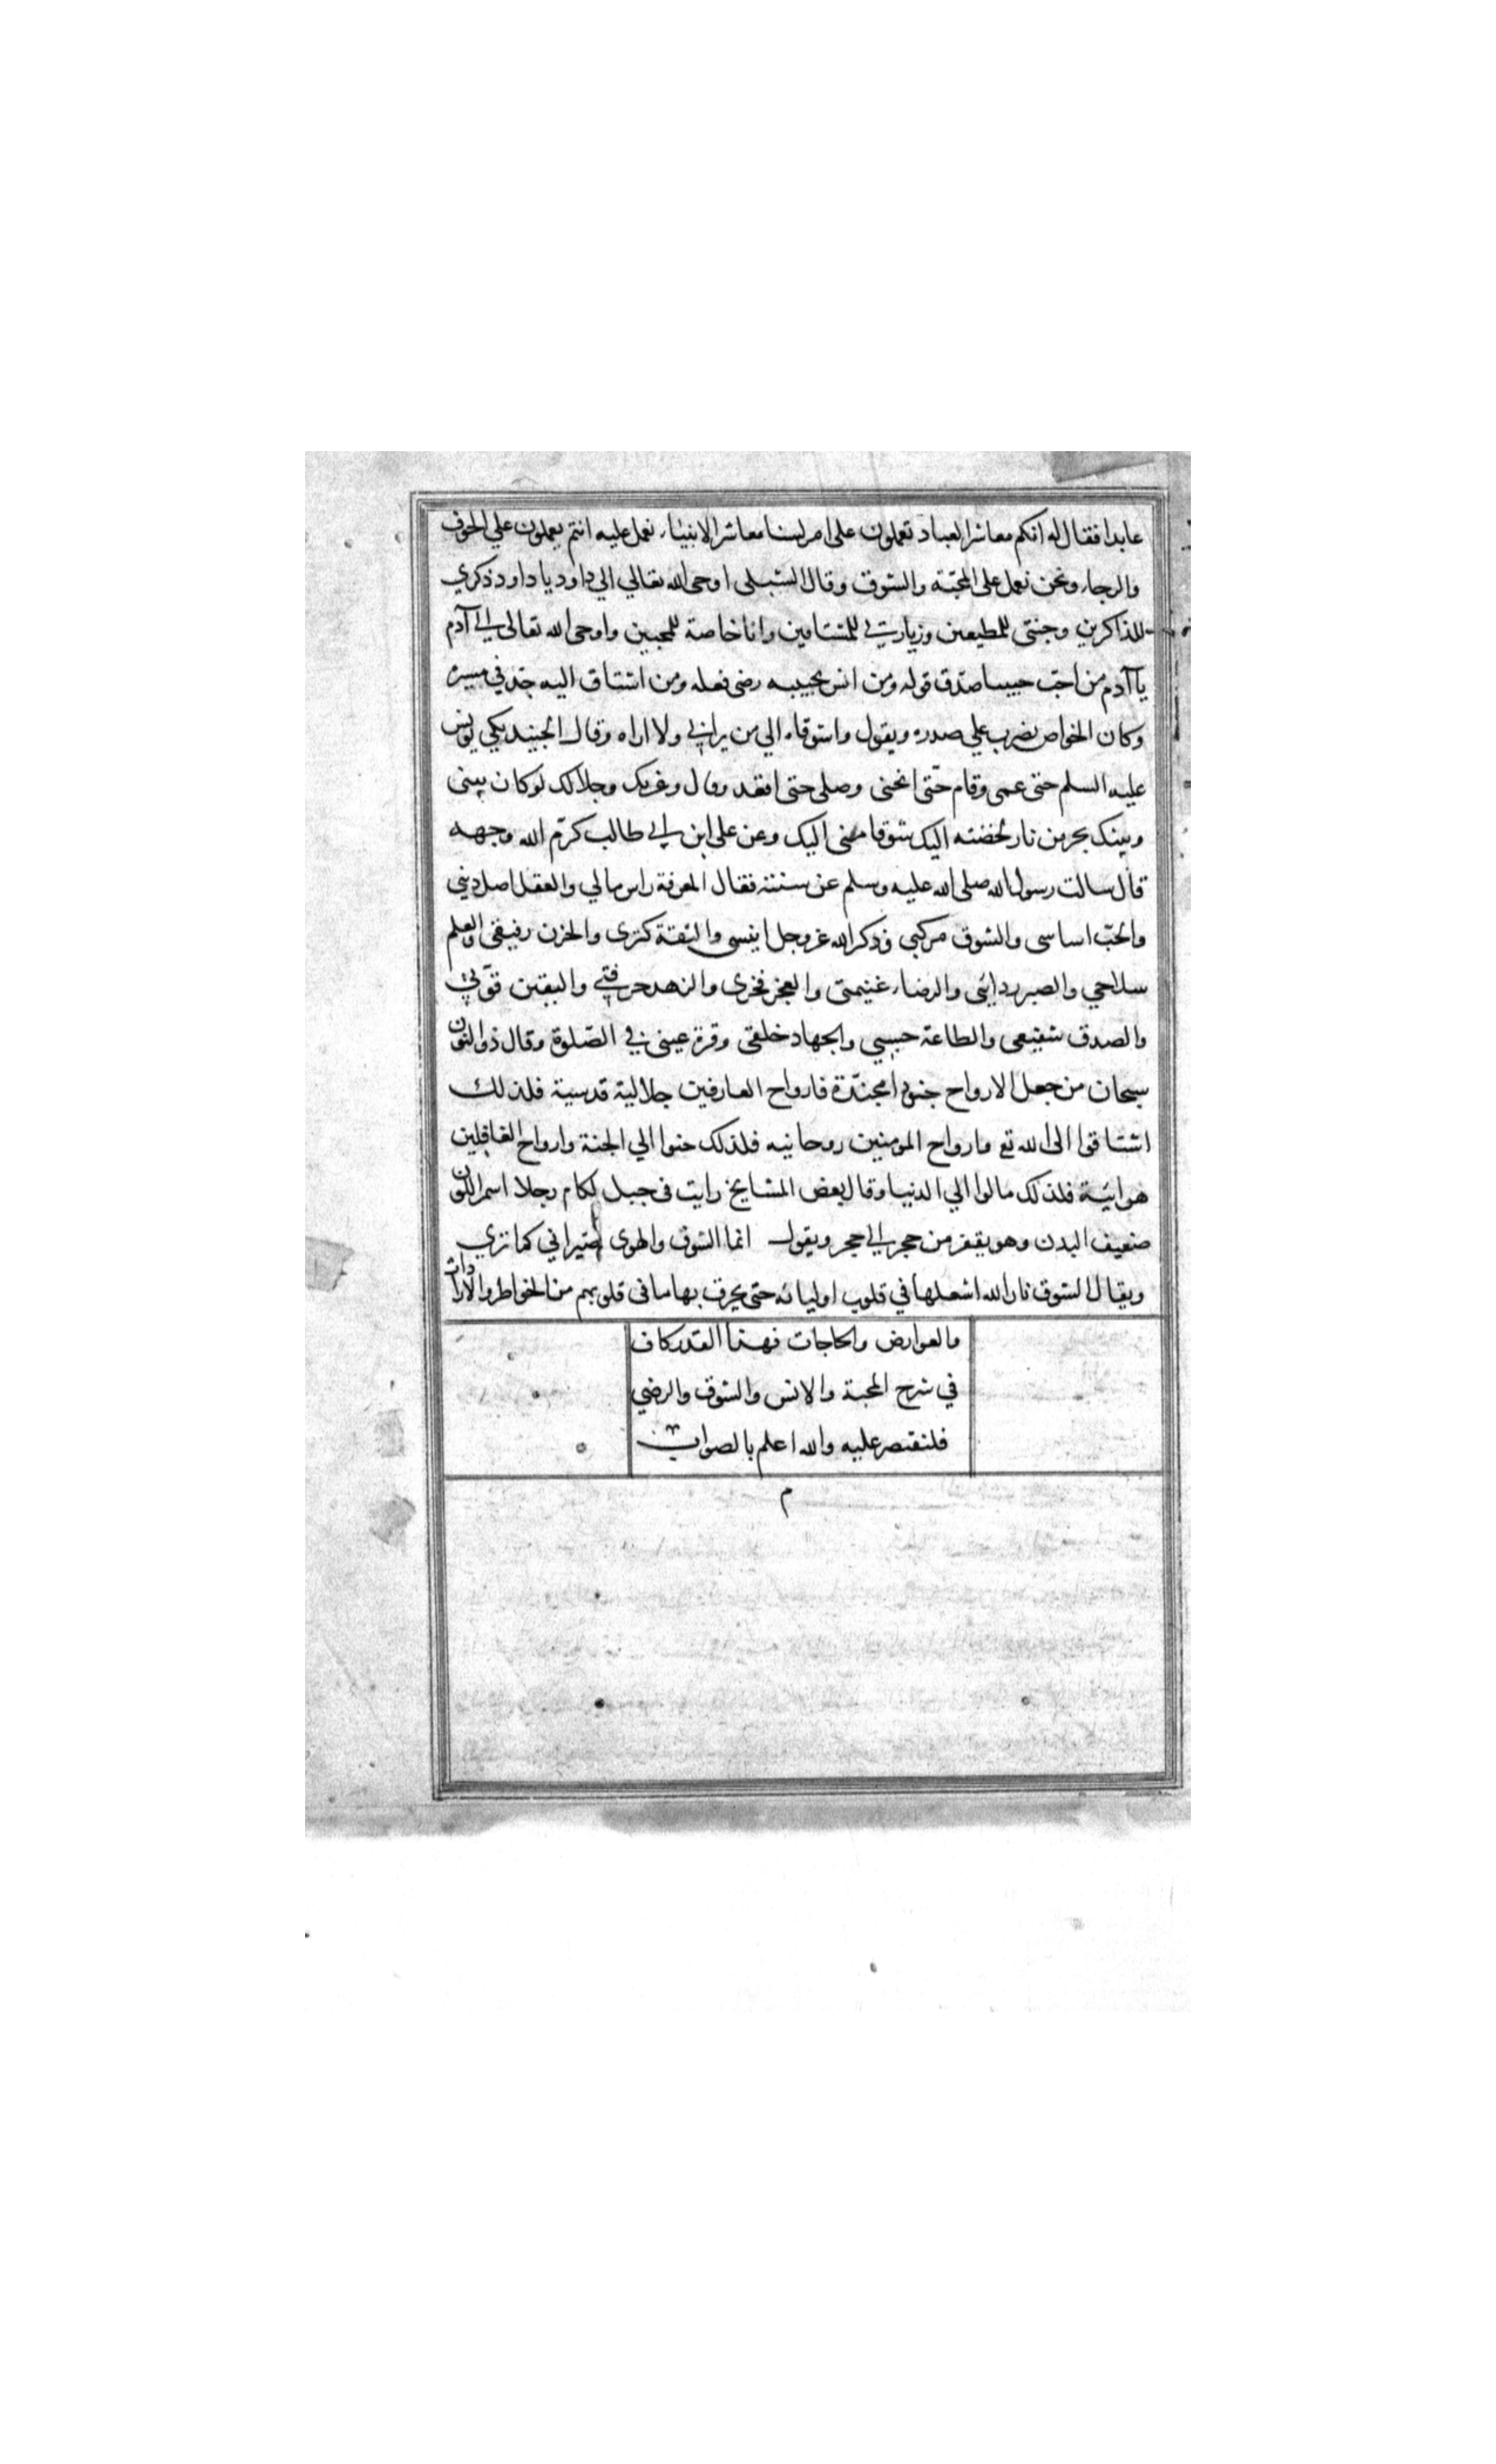 عابدا فقال له انكم معاشر العباد تعملون على امر لسنا معاشر الانبياء نعمل عليه انتم يعملون علي الخوف
والرجاء ونحن نعمل على المحبّة والشوق وقال الشبلى اوحى الله تعالي الي داود يا داود ذكري
للذاكرين وجنتى للمطيعين وزيارتي للمشتاقين وانا خاصة للمحبين واوحى الله تعالى الي آدم
يا آدم من احبّ حبيبا صدّق قوله ومن انس بحبيبه رضى فعله ومن اشتاق اليه جدّ في مسيره
وكان الخواص يضرب علي صدره ويقول واشوقاه الي من يراني ولا اراه وقال الجنيد بكي يونس
عليه السلم حتى عمى وقام حتّى انحنى وصلى حتى اقعد وقال وعزتك وجلالك لو كان بينى
وبينك بحر من نار لخضته اليك شوقا منى اليك وعن على ابن ابي طالب كرّم الله وجهه
قال سالت رسول الله صلى الله عليه وسلم عن سنته فقال المعرفة راس مالي والعقل اصل دينى
والحبّ اساسى والشوق مركبي وذكر الله عز وجل انيسى والثقة كنزى والحزن رفيقى والعلم
سلاحي والصبر ردائى والرضاء غنيمتى والعجز فخرى والزهد حرفتي واليقين قوّتي
والصدق شفيعى والطاعة حسبي والجهاد خلقى وقرة عينى في الصّلوة وقال ذو النون
سبحان من جعل الارواح جنودا مجنّدة فارواح العارفين جلالية قدسية فلذلك
اشتاقوا الى الله تع وارواح المومنين روحانيه فلذلك حنوا الي الجنة وارواح الغافلين
هوائية فلذلك مالوا الي الدنيا وقال بعض المشايخ رايت فى جبل لكام رجلا اسمر اللون
ضعيف البدن وهو يقفز من حجر الي حجر ويقول انما الشوق والهوى صيراني كما تري
ويقال الشوق نار الله اشعلها في قلوب اوليائه حتى يحرق بها ما فى قلوبهم من الخواطر والارادات
والعوارض والحاجات فهذا القدر كاف
في شرح المحبة والانس والشوق والرضي
فلنقتصر عليه والله اعلم بالصواب
م